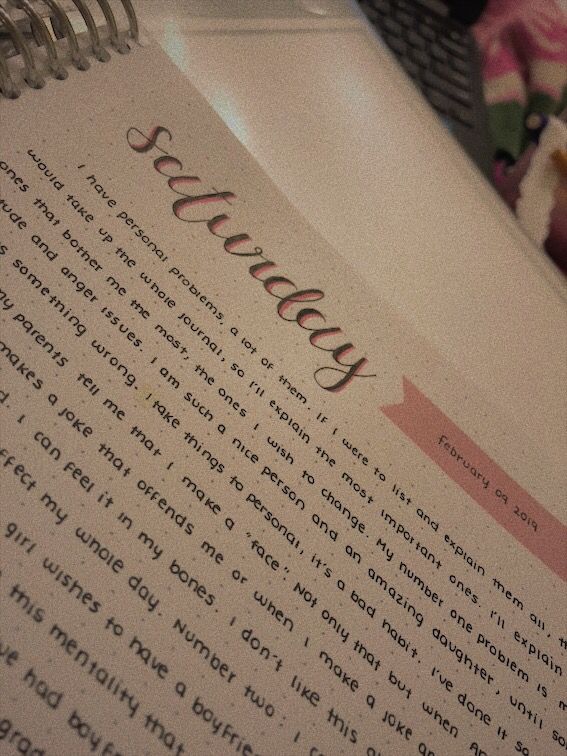 saturday
february 09 2019
I have personal problems, a lot of them. If I were to list and explain them all,
would take up the whole journal, so I'll explain the most important ones. I'll explain
ones that bother me the most, the ones I wish to change. My number one problem is
and anger issues. I am such a nice person and an amazing daughter, until
something wrong. I take things to personal, it's a bad habit. I've done it so
my parents tell me that I make a "face". Not only that but when
makes a joke that offends me or when I make a joke
I can feel it in my bones. I don't like this
my whole day. Number two: I
girl wishes to have a
this mentality that
had